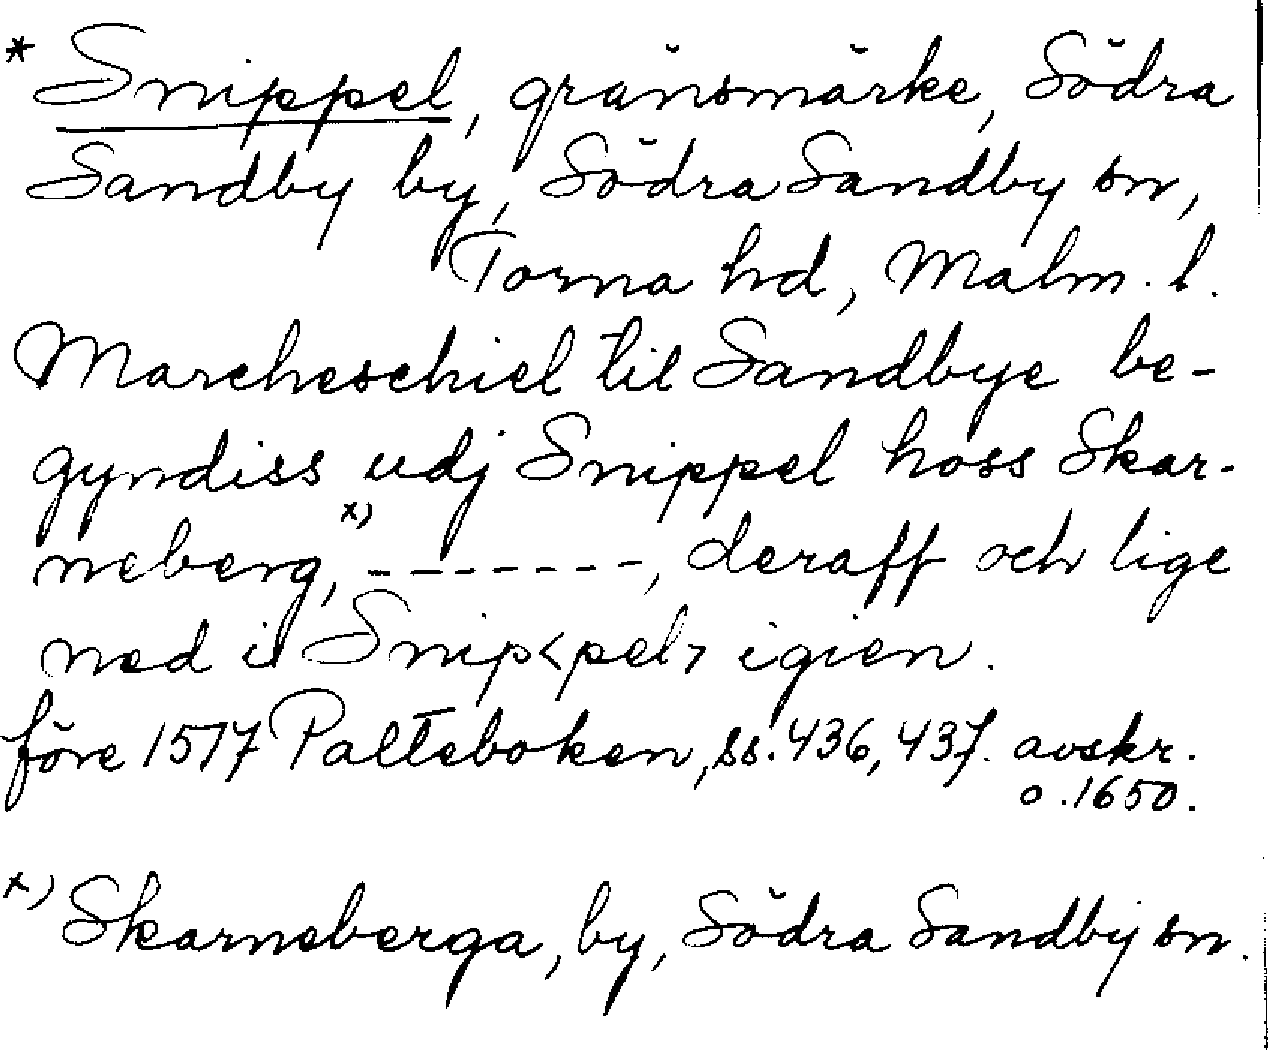 * Snippel, gränsmärke, Södra
Sandby by, Södra Sandby sn,
Torna hd, Malm. l.
Marcheschiel til Sandbye be-
gyndiss udj Snippel hoss Skar-
neberg,x) - - - - - - -, deraff och lige
ned i Snip<pel> igien.
före 1517 Palteboken, ss. 436, 437. avskr.
o. 1650.
x) Skarneberga, by, Södra Sandby sn.